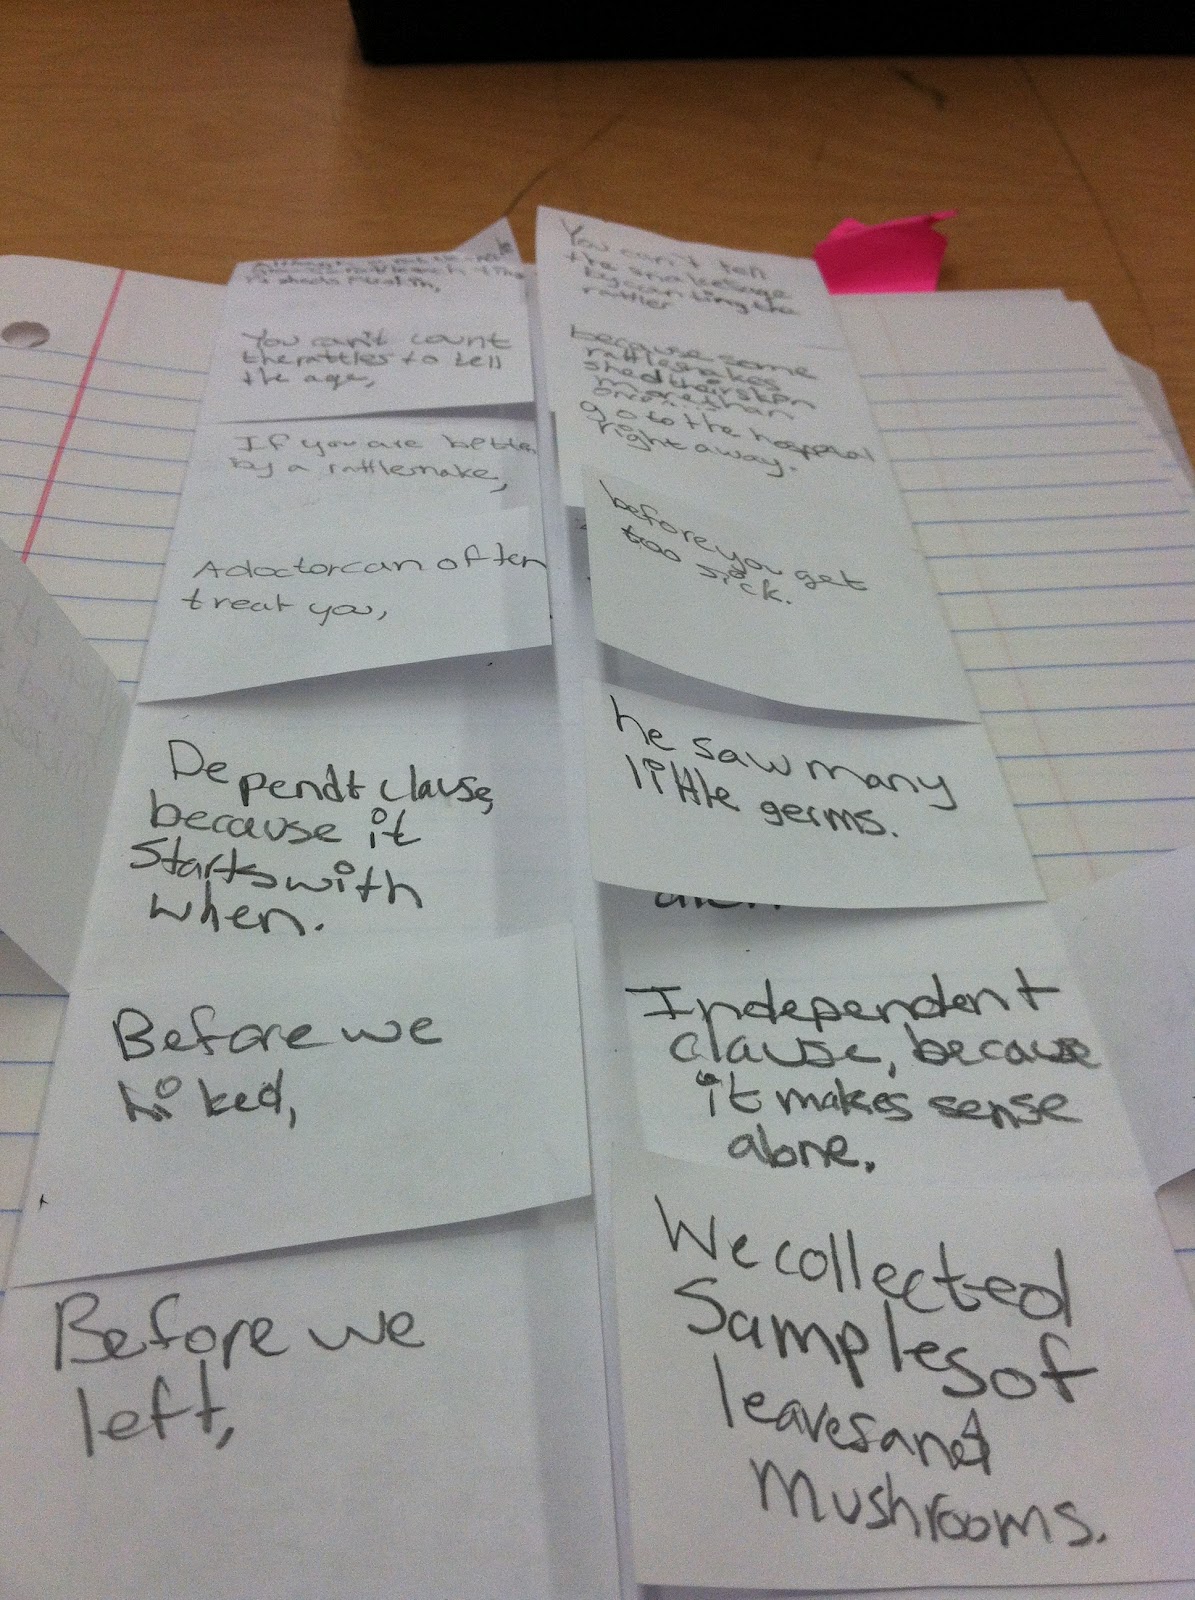 rattle each time
it sheds
You can't count
the rattles to tell
the age,
If you are betten
by a rattlesnake,
A doctor can often
treat you,
Dependt clause,
because it
starts with
when.
Before we
hiked,
Before we
left,
You can't tell
the snakes age
by counting the
rattler
because some
rattlesnakes
shed their skin
more than
once
go to the hospital
right away.
before you get
too sick.
he saw many
little germs.
Independent
clause, because
it makes sense
alone.
We collected
Samples of
leaves and
mushrooms.